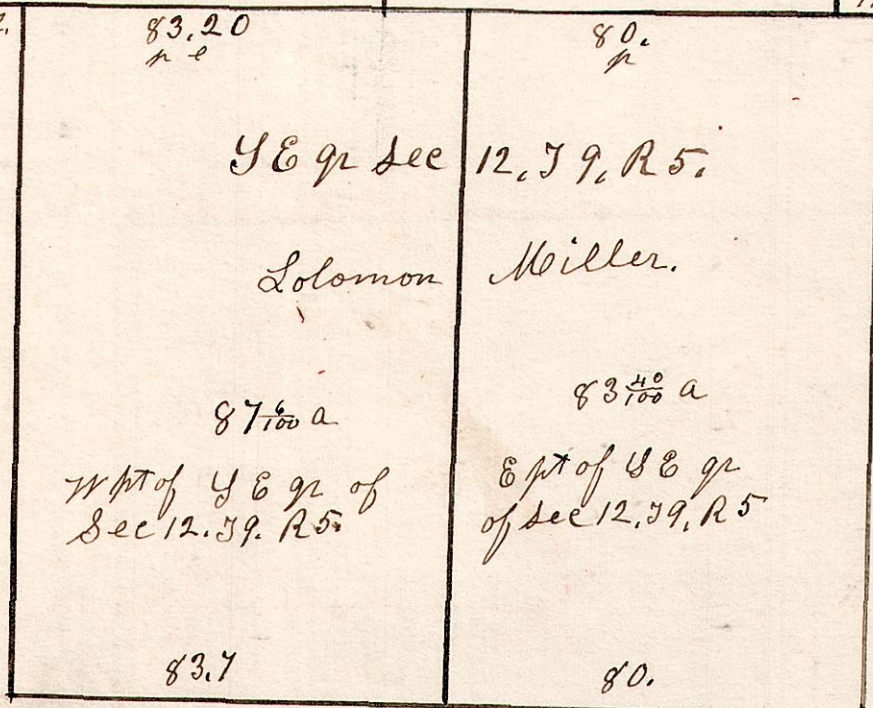 83,20
p e
80.
p
S E qr Sec 12, T 9, R 5.
Solomon Miller.
87 6/100 a
W pt of S E qr of
Sec 12. T 9. R 5.
83 40/100 a
E pt of S E qr
of Sec 12, T 9, R 5
83.7
80.